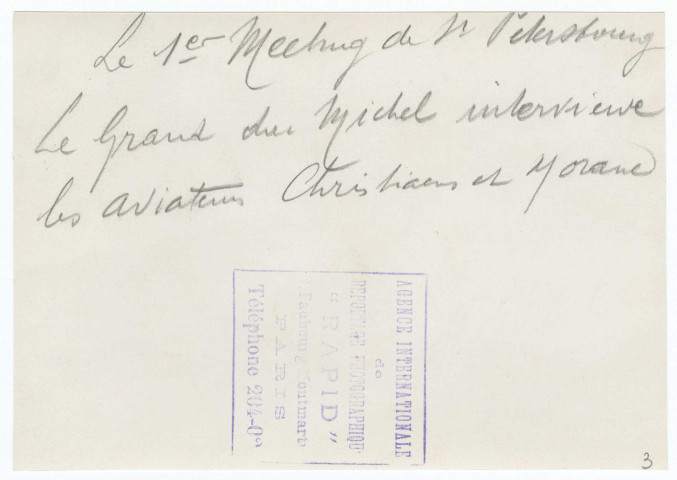 Le 1er Meeting de St Pétersbourg
Le Grand duc Michel interviewe
les aviateurs Christiaens et Morane
AGENCE INTERNATIONALE
de
REPORTAGE PHOTOGRAPHIQUE
" RAPID "
Faubourg Montmartre
PARIS
Téléphone 204-0
3